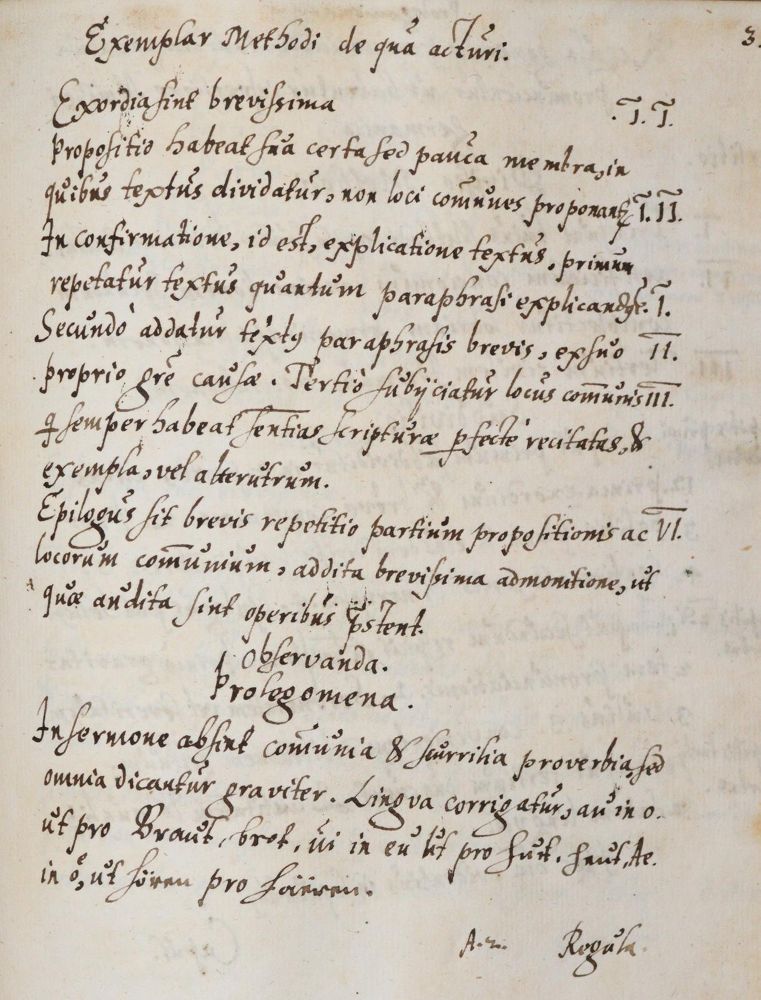 Exemplar Methodi de quâ acturi.
3.
Exordia sint brevissima .I. I.
Propositio habeat sua certa sed pauca membra, in
quibus textus dividatur, non loci cōmunes proponantꝛ I. II.
In confirmatione, id est, explicatione textus, primum
repetatur textus quantum paraphrasi explicandū I.
Secundò addatur textꝰ paraphrasis brevis, ex suo II.
proprio grē causæ. Tertiò subijciatur locus com̄unis III.
semper habeat sentias scripturæ ꝑfectè recitatas, &
exempla, vel alterutrum.
Epilogus sit brevis repetitio partium propositionis ac VI.
locorum com̄unium, addita brevissima admonitione, ut
quæ audita sint operibus p̄stent.
Observanda.
Prolegomena.
In sermone absint com̄unia & scurrilia proverbia, sed
omnia dicantur graviter. Lingva corrigatur, au in o.
ut pro Braut, brot, ui in eu ut pro huit, heut, Ae.
in ö, ut hören pro
A.2. Regula.